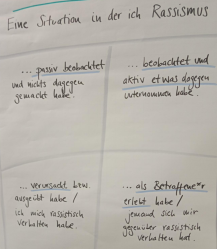 Eine Situation in der ich Rassismus
... passiv beobachtet
und nichts dagegen
gemacht habe.
... beobachtet und
aktiv etwas dagegen
unternommen habe.
... verursacht bzw.
ausgeübt habe /
ich mich rassistisch
verhalten habe.
... als Betroffene*r
erlebt habe /
jemand sich mir
gegenüber rassistisch
verhalten hat.